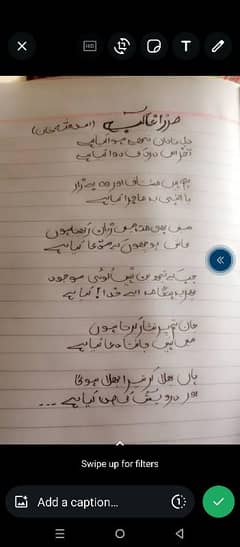 HD T
مرزا غالب (اسد اللہ خان)
دل ناداں تجھے ہوا کیا ہے
آخر اس درد کی دوا کیا ہے
ہم ہیں مشتاق اور وہ بیزار
یا الہی یہ ماجرا کیا ہے
میں بھی منہ میں زبان رکھتا ہوں
کاش پوچھو کہ مدعا کیا ہے
جب کہ تجھ بن نہیں کوئی موجود
پھر یہ ہنگامہ اے خدا! کیا ہے
جان تم پر نثار کرتا ہوں
میں نہیں جانتا دعا کیا ہے
ہاں بھلا کر تیرا بھلا ہوگا
اور درویش کی صدا کیا ہے ...
Swipe up for filters
Add a caption... 1